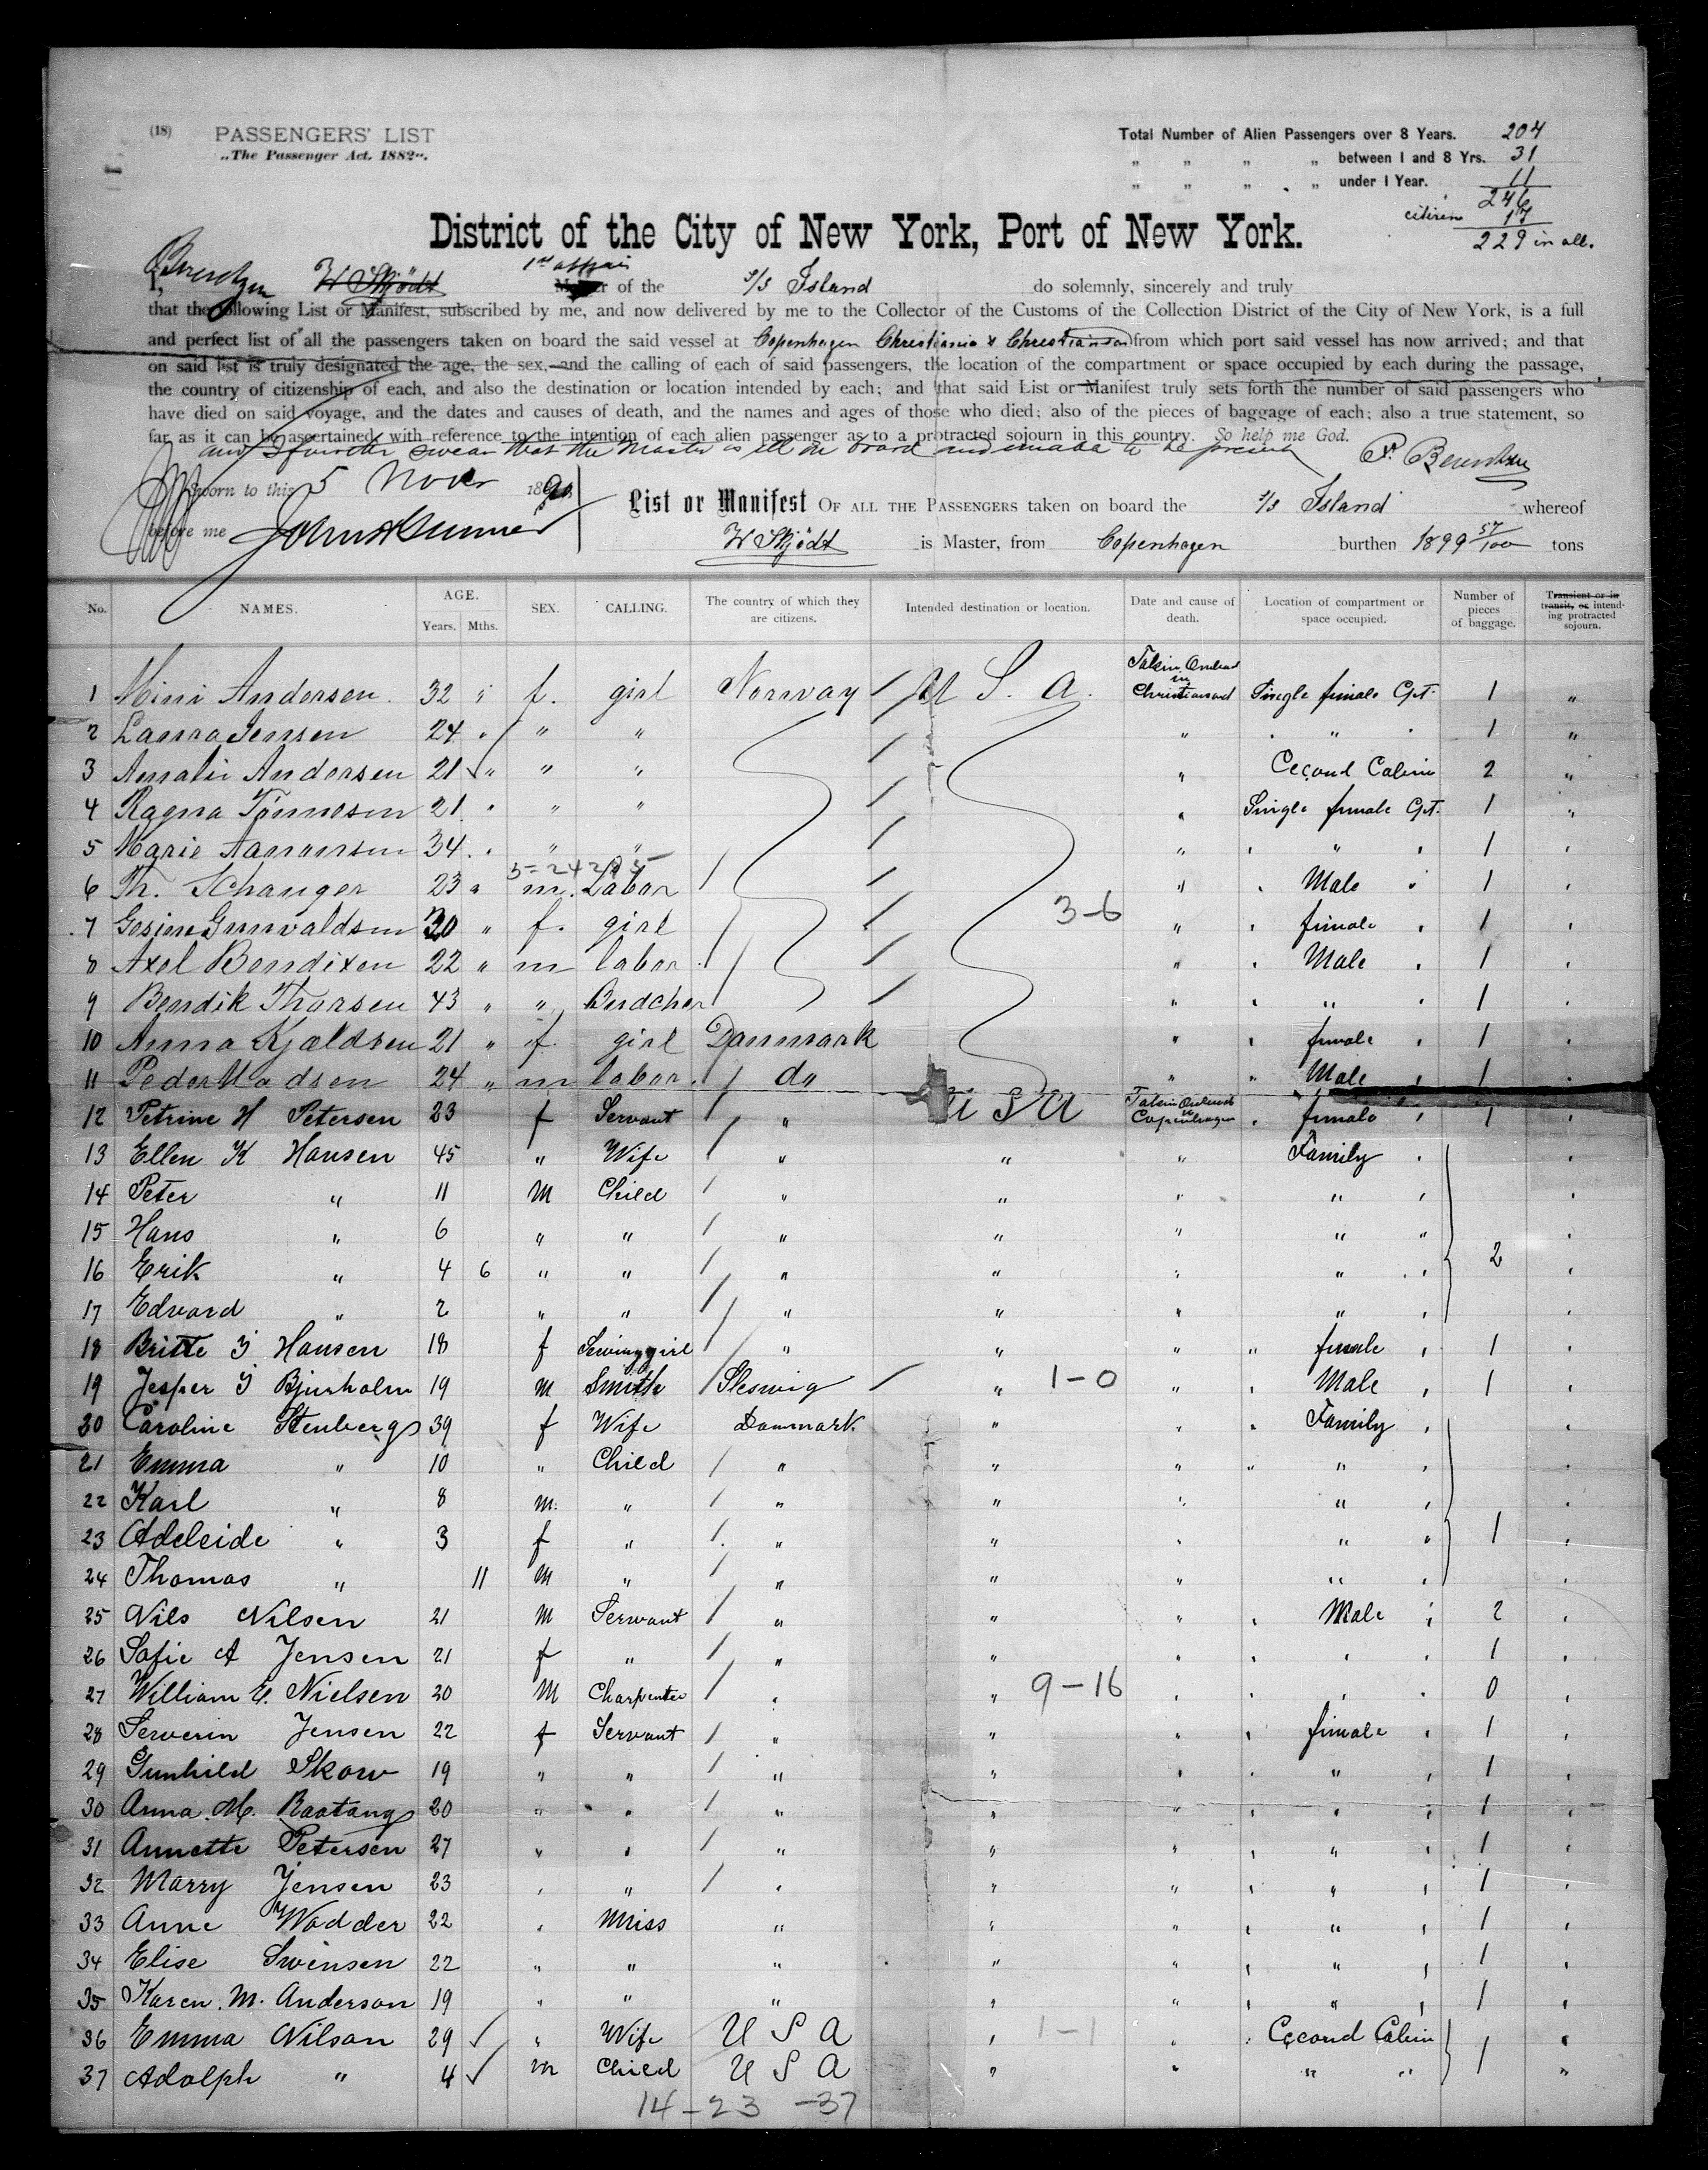 (18) PASSENGERS' LIST
„The Passenger Act, 1882“.
Total Number of Alien Passengers over 8 Years. 204
„ „ „ „ between 1 and 8 Yrs. 31
„ „ „ „ under 1 Year. 11
246
citizen 17
229 in all.
District of the City of New York, Port of New York.
I, W Skjödt 1st of the S/S Island do solemnly, sincerely and truly
that the following List or Manifest, subscribed by me, and now delivered by me to the Collector of the Customs of the Collection District of the City of New York, is a full
and perfect list of all the passengers taken on board the said vessel at Copenhagen Christiania & Christiansand from which port said vessel has now arrived; and that
on said list is truly designated the age, the sex, and the calling of each of said passengers, the location of the compartment or space occupied by each during the passage,
the country of citizenship of each, and also the destination or location intended by each; and that said List or Manifest truly sets forth the number of said passengers who
have died on said voyage, and the dates and causes of death, and the names and ages of those who died; also of the pieces of baggage of each; also a true statement, so
far as it can be ascertained, with reference to the intention of each alien passenger as to a protracted sojourn in this country. So help me God.
and I further swear that the Master is ill on board and unable to be present
Sworn to this 5 Novr 1890
before me
List or Manifest OF ALL THE PASSENGERS taken on board the S/S Island whereof
W Skjödt is Master, from Copenhagen burthen 1899 57/100 tons
No. NAMES. AGE. Years. Mths. SEX. CALLING. The country of which they are citizens. Intended destination or location. Date and cause of death. Location of compartment or space occupied. Number of pieces of baggage. Transient or in transit, or intending protracted sojourn.
1 Mini Andersen 32 " f. girl Norway / U S. A. Taken Onboard in Christiansand Single female Cpt. 1 "
2 Laura Jensen 24 " " " / " " 1 "
3 Amalie Andersen 21 " " " / " Cecond Cabin 2 "
4 Ragna Tönnesen 21 " " " / " Single female Cpt. 1 "
5 Marie 34 " " " / " " 1 "
5=24295
6 Th. Schanger 23 " m. Labor / / " Male 1 "
7 Gosine Gunvaldsen 30 " f. girl / / 3-6 " female 1 "
8 Axel Bendixen 22 " m labor / / " Male 1 "
9 Bendik Thorsen 43 " " Budcher / / " " 1 "
10 Anna Kjældsen 21 " f. girl Danmark " female 1 "
11 Peder Madsen 24 " m labor / do " Male 1 "
12 Petrine H Petersen 23 f Servant / " U S A Taken Onboard in Copenhagen female 1 "
13 Ellen K Hansen 45 " Wife / " " " Family "
14 Peter " 11 M Child / " " " " "
15 Hans " 6 " " / " " " " "
16 Erik " 4 6 " " / " " " " 2 "
17 Edvard " 2 " " / " " " " "
18 Britte J Hansen 18 f Sewinggirl / " " " female 1 "
19 Jesper J Bjurholm 19 M Smith / Sleswig / " 1-0 " Male 1 "
20 Caroline Stenbergs 39 f Wife Danmark " " Family "
21 Emma " 10 " Child / " " " " "
22 Karl " 8 m. " / " " " " "
23 Adeleide " 3 f " / " " " " 1 "
24 Thomas " 11 M " / " " " " "
25 Nils Nilsen 21 M Servant / " " " Male 2 "
26 Sofie A Jensen 21 f " / " " " " 1 "
27 William E. Nielsen 20 M Charpenter / " " 9-16 " " 0 "
28 Serverin Jensen 22 f Servant / " " " female 1 "
29 Gunhild Skow 19 " " / " " " " 1 "
30 Anna M. Raatangs 20 " " / " " " " 1 "
31 Annette Petersen 27 " " / " " " " 1 "
32 Marry Jensen 23 " " / " " " " 1 "
33 Anne Wodder 22 " Miss " " " " 1 "
34 Elise Swensen 22 " " " " " " 1 "
35 Karen M. Anderson 19 " " " " " " 1 "
36 Emma Nilson 29 " Wife U S A " 1-1 " Cecond Cabin 1 "
37 Adolph " 4 m Child U S A " " " "
14-23-37